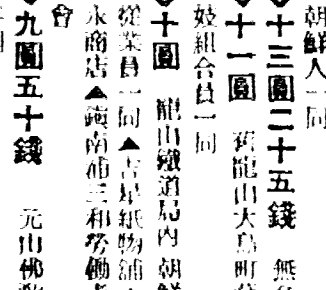 朝鮮人一同
十三圓二十五錢 無
十一圓 舊龍山大島町
妓組合員一同
十圓 龍山鐵道局內 朝鮮
從業員一同▲吉星紙物舖
永商店▲鎭南浦三和勞働者
會
九圓五十錢 元山佛敎